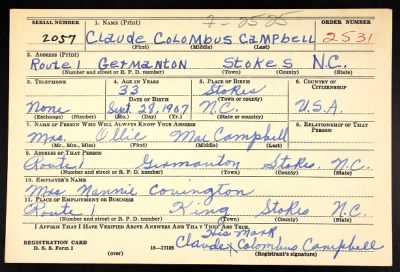 7-2525
SERIAL NUMBER 1. NAME (Print) ORDER NUMBER
2057 Claude Colombus Campbell 2531
(First) (Middle) (Last)
2. ADDRESS (Print)
Route 1 Germanton Stokes N.C.
(Number and street or R. F. D. number) (Town) (County) (State)
3. TELEPHONE 4. AGE IN YEARS 5. PLACE OF BIRTH 6. COUNTRY OF CITIZENSHIP
33 Stokes
DATE OF BIRTH (Town or county)
None Sept. 28, 1907 N.C. U.S.A.
(Exchange) (Number) (Mo.) (Day) (Yr.) (State or country)
7. NAME OF PERSON WHO WILL ALWAYS KNOW YOUR ADDRESS 8. RELATIONSHIP OF THAT PERSON
Mrs. Ollie Mae Campbell
(Mr., Mrs., Miss) (First) (Middle) (Last)
9. ADDRESS OF THAT PERSON
Route 1 Germanton Stokes N.C.
(Number and street or R. F. D. number) (Town) (County) (State)
10. EMPLOYER'S NAME
Mrs. Nannie Covington
11. PLACE OF EMPLOYMENT OR BUSINESS
Route 1 King Stokes N.C.
(Number and street or R. F. D. number) (Town) (County) (State)
I AFFIRM THAT I HAVE VERIFIED ABOVE ANSWERS AND THAT THEY ARE TRUE.
His Mark
REGISTRATION CARD Claude x Colombus Campbell
D. S. S. Form 1 (over) 16—17105 (Registrant's signature)